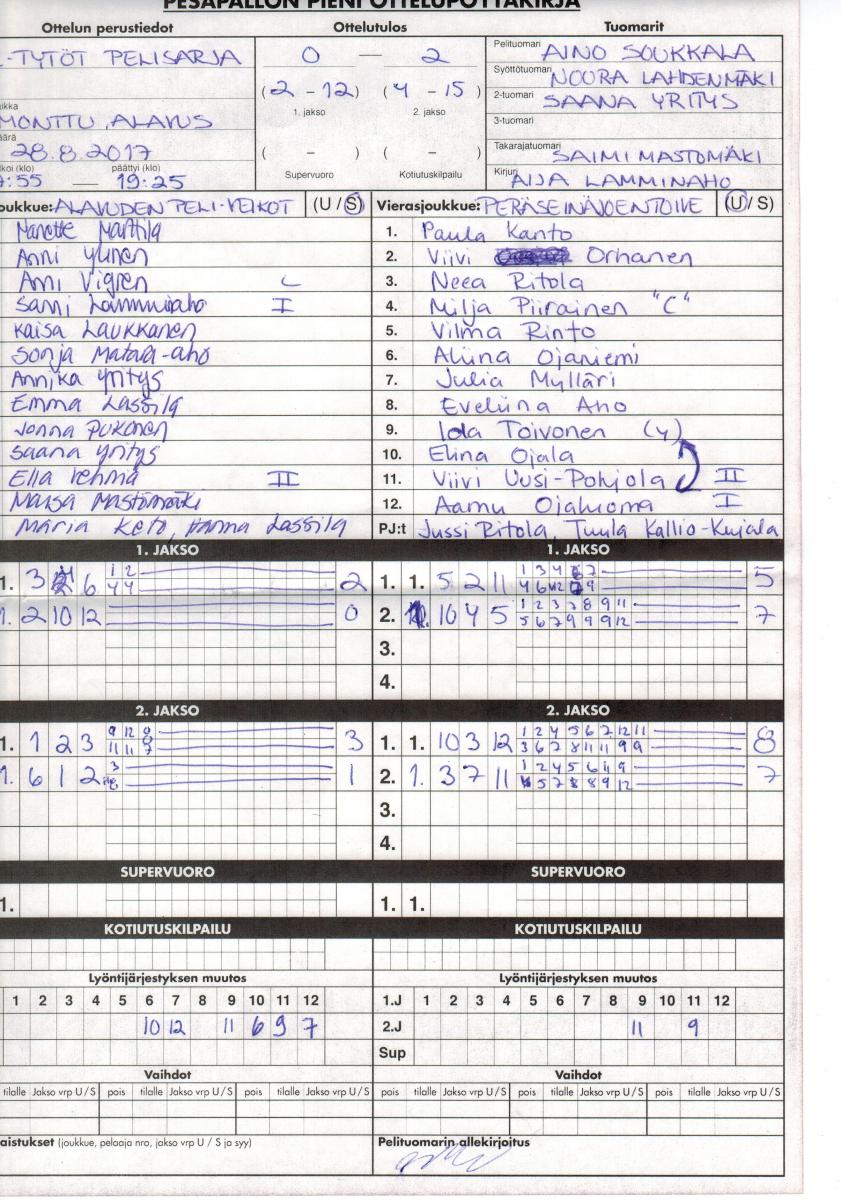 PESÄPALLON PIENI OTTELUPÖYTÄKIRJA
Ottelun perustiedot Ottelutulos Tuomarit
-TYTÖT PELISARJA 0 — 2 Pelituomari AINO SOUKKALA
Syöttötuomari NOORA LAHDENMÄKI
(2 - 12) (4 - 15) 2-tuomari SAANA YRITYS
MONTTU, ALAVUS 1. jakso 2. jakso 3-tuomari
28.8.2017 ( - ) ( - ) Takarajatuomari SAIMI MASTOMÄKI
koi (klo) päättyi (klo) Supervuoro Kotiutuskilpailu
:55 — 19:25 Kirjuri AIJA LAMMINAHO
oukkue: ALAVUDEN PELI-VEIKOT (U / S) Vierasjoukkue: PERÄSEINÄJOENTOIVE (U / S)
Nanette Marttila 1. Paula Kanto
Anni Ylinen 2. Viivi Orhanen
Anni Vigren C 3. Neea Ritola
Sanni Lamminaho I 4. Milja Piirainen "C"
Kaisa Laukkanen 5. Vilma Rinto
Sonja Matala-aho 6. Aliina Ojaniemi
Annika Yritys 7. Julia Mylläri
Emma Lassila 8. Eveliina Aho
Jonna Pukonen 9. Iida Toivonen (4)
Saana Yritys 10. Elina Ojala
Ella Vehmä II 11. Viivi Uusi-Pohjola II
Maisa Mastomäki 12. Aamu Ojaluoma I
Maria Keto, Hanna Lassila PJ:t Jussi Ritola, Tuula Kallio-Kujala
1. JAKSO 1. JAKSO
1 2 1 3 4 6 7
1. 3 6 2 1. 1. 5 2 11 5
4 4
1 2 3 7 8 9 11
1. 2 10 12 0 2. 10 4 5 7
5 6 7 9 9 9 12
3.
4.
2. JAKSO 2. JAKSO
9 12 8 1 2 4 5 6 7 12 11
1. 1 2 3 3 1. 1. 10 3 12 8
11 11 9 3 6 7 8 11 11 9 9
3 1 2 4 5 6 11 9
1. 6 1 2 1 2. 1. 3 7 11 7
8 5 7 8 8 9 12
3.
4.
SUPERVUORO SUPERVUORO
1. 1. 1.
KOTIUTUSKILPAILU KOTIUTUSKILPAILU
Lyöntijärjestyksen muutos Lyöntijärjestyksen muutos
1 2 3 4 5 6 7 8 9 10 11 12 1.J 1 2 3 4 5 6 7 8 9 10 11 12
10 12 11 6 9 7 2.J 11 9
Sup
Vaihdot Vaihdot
tilalle Jakso vrp U / S pois tilalle Jakso vrp U / S pois tilalle Jakso vrp U / S pois tilalle Jakso vrp U / S pois tilalle Jakso vrp U / S pois tilalle Jakso vrp U / S
aistukset (joukkue, pelaaja nro, jakso vrp U / S ja syy) Pelituomarin allekirjoitus